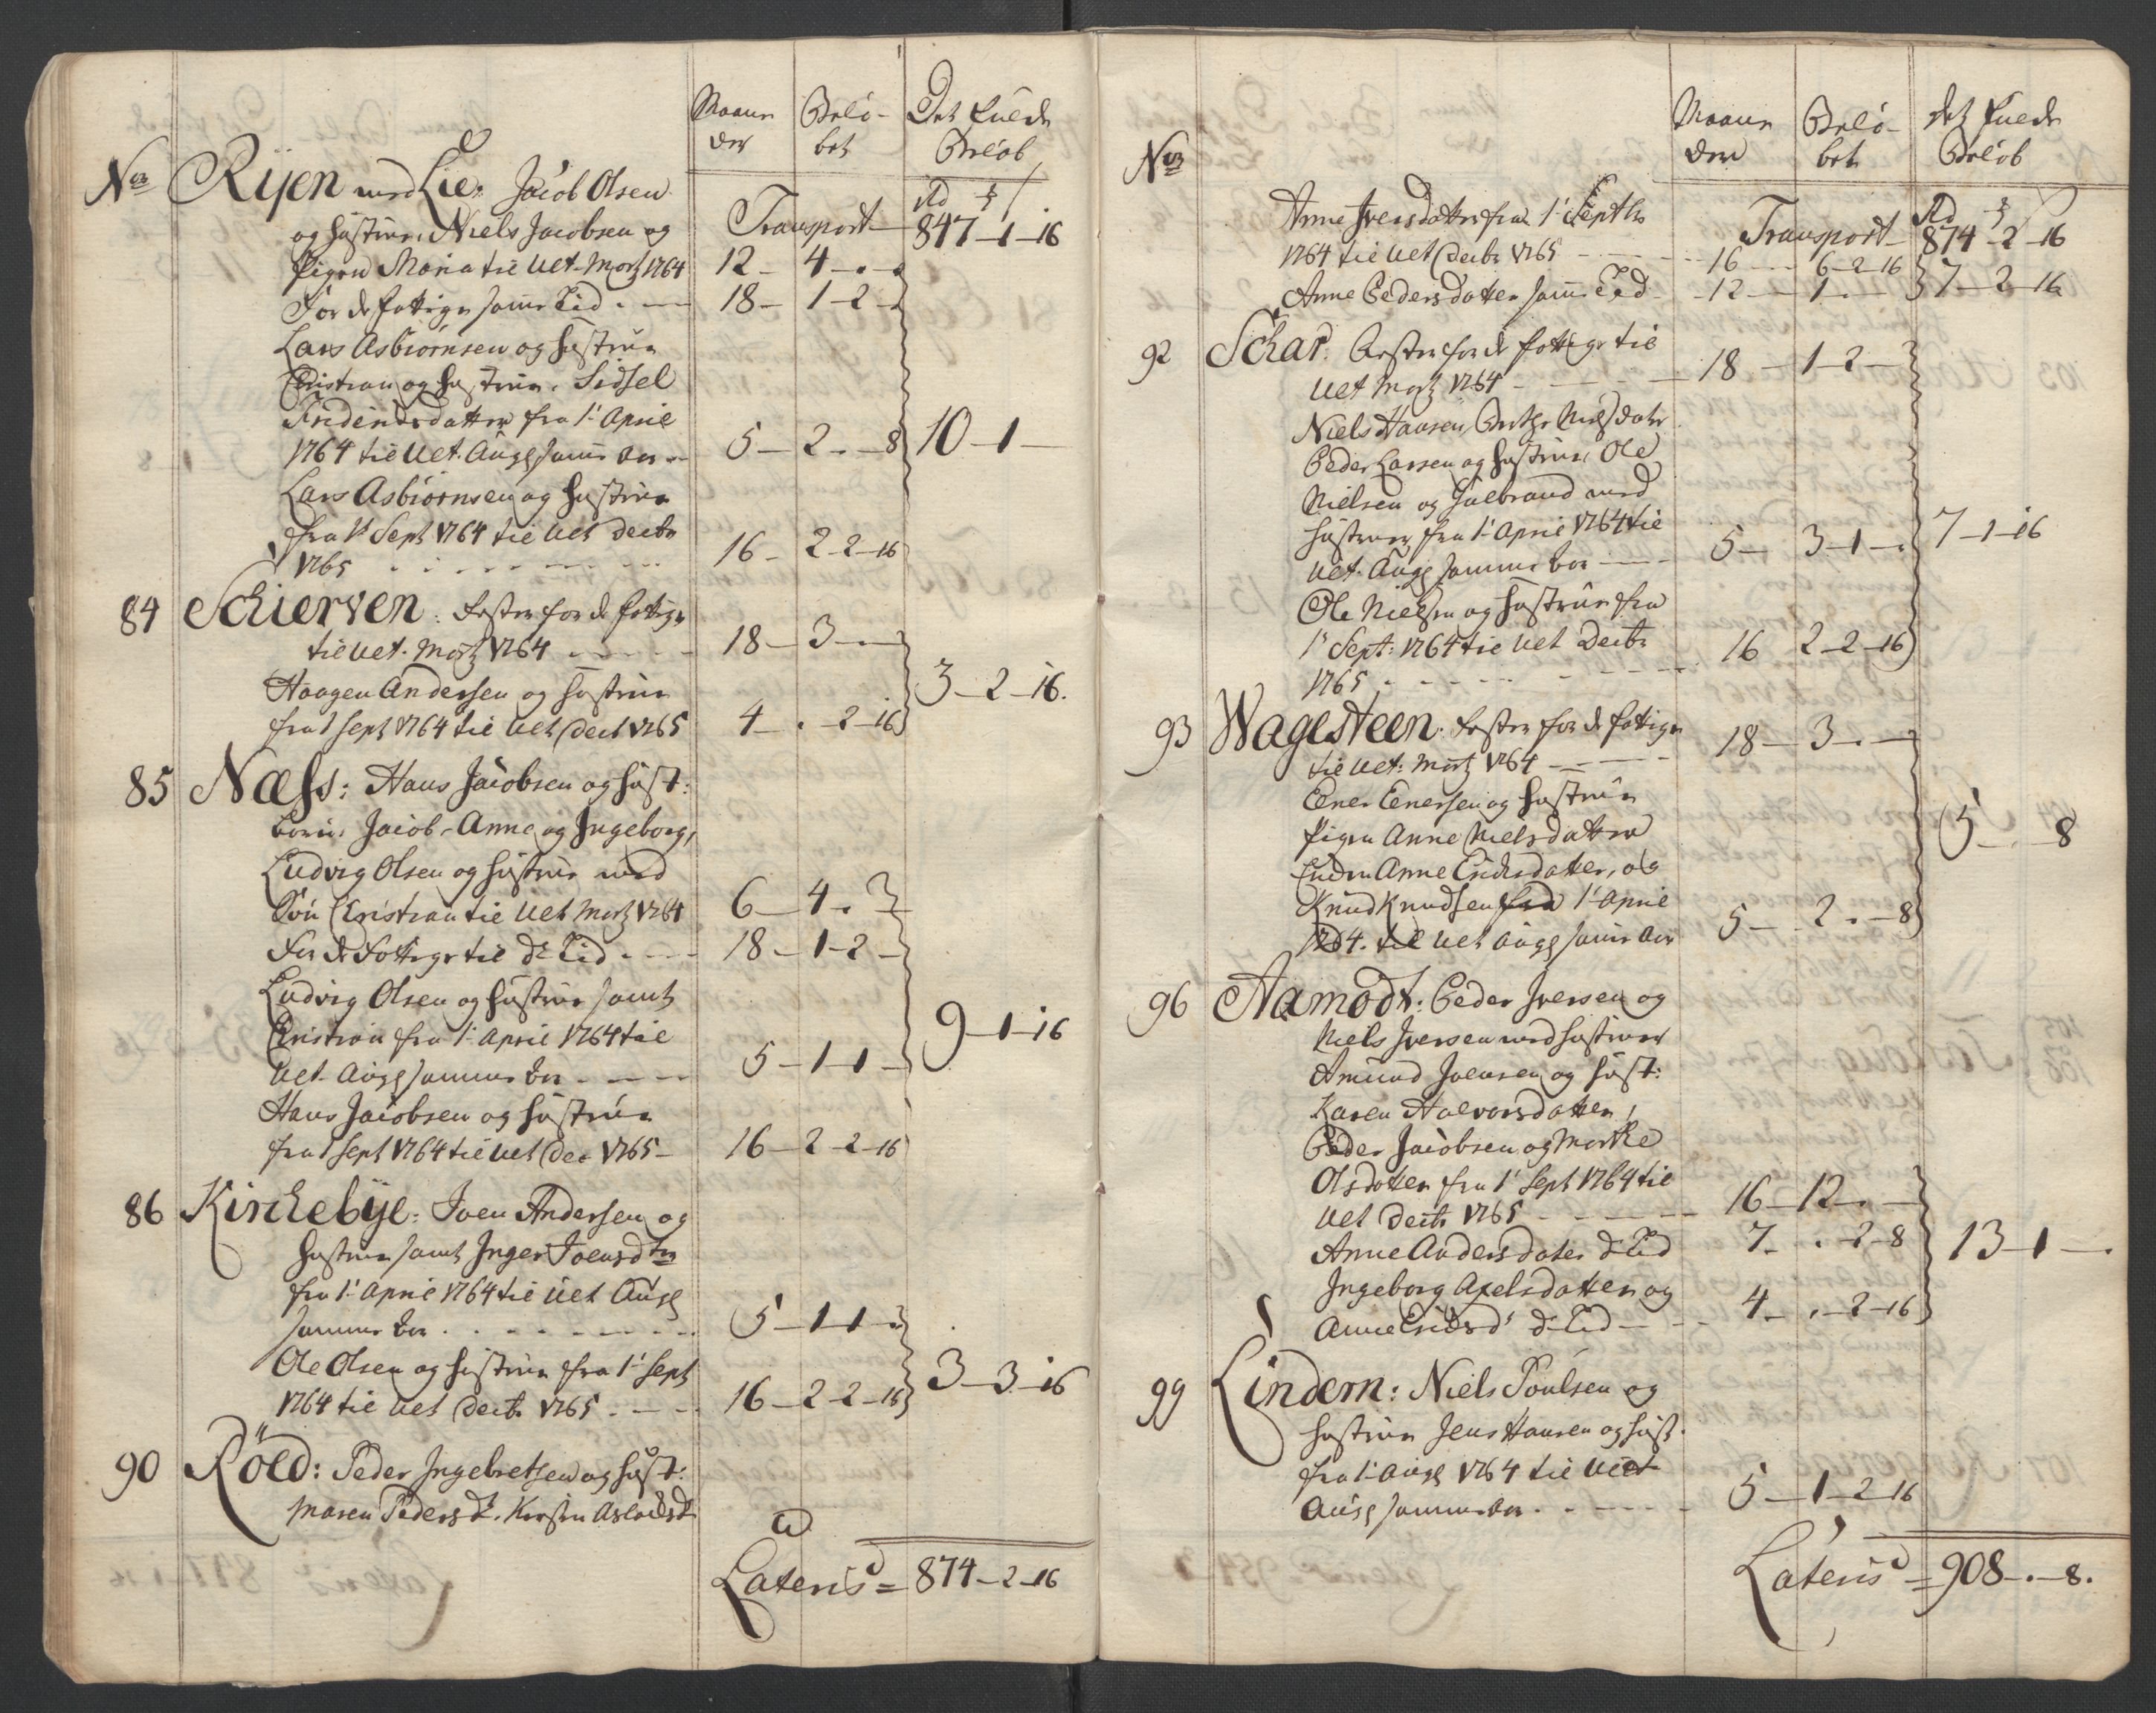 Maane
der
Beløb-
bet
Det fulde
Beløb
No
Rijen med Lie: Jacob Olsen
og hustrue, Niels Jacobsen og
Pigen Maria til Ult. Martz 1764
12 – 4 – . – .
Transport – Rd 847 – 1 – 16
For de fattige samme Tid . – 18 – 1 – 2 –
Lars Asbiørnsen og hustrue
Christian og hustrue, Sidsel
Fridericsdatter fra 1. April
1764 til Ult. Aug samme Aar – 5 – 2 . – 8
10 – 1 –
Lars Asbiørnsen og hustrue
fra 1 Sept 1764 til Ult Decbr
1765 . . . . 16 – 2 – 2 – 16
84 Schierven: Rester for de fattige
til Ult. Martz 1764 . . . 18 – 3 – . –
Haagen Andersen og hustrue
fra 1 Sept 1764 til Ult Dect 1765 4 – . – 2 – 16
3 – 2 – 16.
85 Næss: Hans Jacobsen og hust:
børn, Jacob, Anne og Ingeborg,
Ludvig Olsen og hustrue med
Søn Christian til Ult Martz 1764 6 – 4 . –
For de Fattige til do Tid . . . 18 – 1 – 2 –
Ludvig Olsen og hustrue samt
Christian fra 1. April 1764 til
Ult. Aug samme Aar . – – 5 – 1 – 1 –
9 – 1 – 16
Hans Jacobsen og hustrue
fra 1 Sept 1764 til Ult Dec 1765 – 16 – 2 – 2 – 16
86 Kirckebye: Joen Andersen og
hustrue samt Inger Joensdtr
fra 1. April 1764 til Ult Aug
samme Aar . . . . 5 – 1 – 1 – .
Ole Olsen og hustrue fra 1. Sept
1764 til Ult Decbr 1765 . – – 16 – 2 – 2 – 16
3 – 3 – 16
90 Röed: Peder Ingebretsen og hust:
Maren Pedersdr. Kersten Aslacksdr
Lateris = 874 – 2 – 16
No
Maane
der
Beløb-
bet
det fulde
Beløb
Transport – Rd 874 – 2 – 16
Anne Iversdatter fra 1. Septbr
1764 til Ult Decbr 1765 – – – 16 – 6 – 2 – 16
Anne Pedersdatter samme Tid – 12 – 1 . –
7 – 2 – 16
92 Schar. Rester for de fattige til
Ult Martz 1764 – – 18 – 1 – 2 –
Niels Hansen, Berthe Nielsdatr
Peder Larsen og hustrue, Ole
Nielsen og Gulbrand med
hustruer, fra 1. April 1764 til
Ult. Aug samme Aar – – 5 – 3 – 1 – .
7 – 1 – 16
Ole Nielsen og hustrue fra
1. Sept: 1764 til Ult Decbr
1765 . – – – 16 2 – 2 – 16
93 Wagesteen: Rester for de fattige
til Ult: Martz 1764 – – – 18 – 3 – . –
Ener Enersen og hustrue
Pigen Anne Nielsdatter
Enken Anne Ericksdatter, og
Knud Knudsen fra 1. April
1764. til Ult Aug samme Aar 5 – 2 . – 8
5 – . – 8
96 Aamodt: Peder Iversen og
Niels Iversen med hustruer
Amund Joensen og hust:
Karen Halvorsdatter,
Peder Jacobsen og Marthe
Olsdatter fra 1. Sept 1764 til
Ult Decbr 1765 – – – 16 – 12 . –
Anne Andersdater do Tid 7 – . – 2 – 8
13 – 1 – .
Ingeborg Axelsdatter og
Anne Ericksdr do Tid – – 4 – . – 2 – 16
99 Lindern: Niels Poulsen og
hustrue Jens Hansen og hust.
fra 1. Aug 1764 til Ult
Aug samme Aar . – – 5 – 1 – 2 – 16
Lateris = 908 – . – 8.